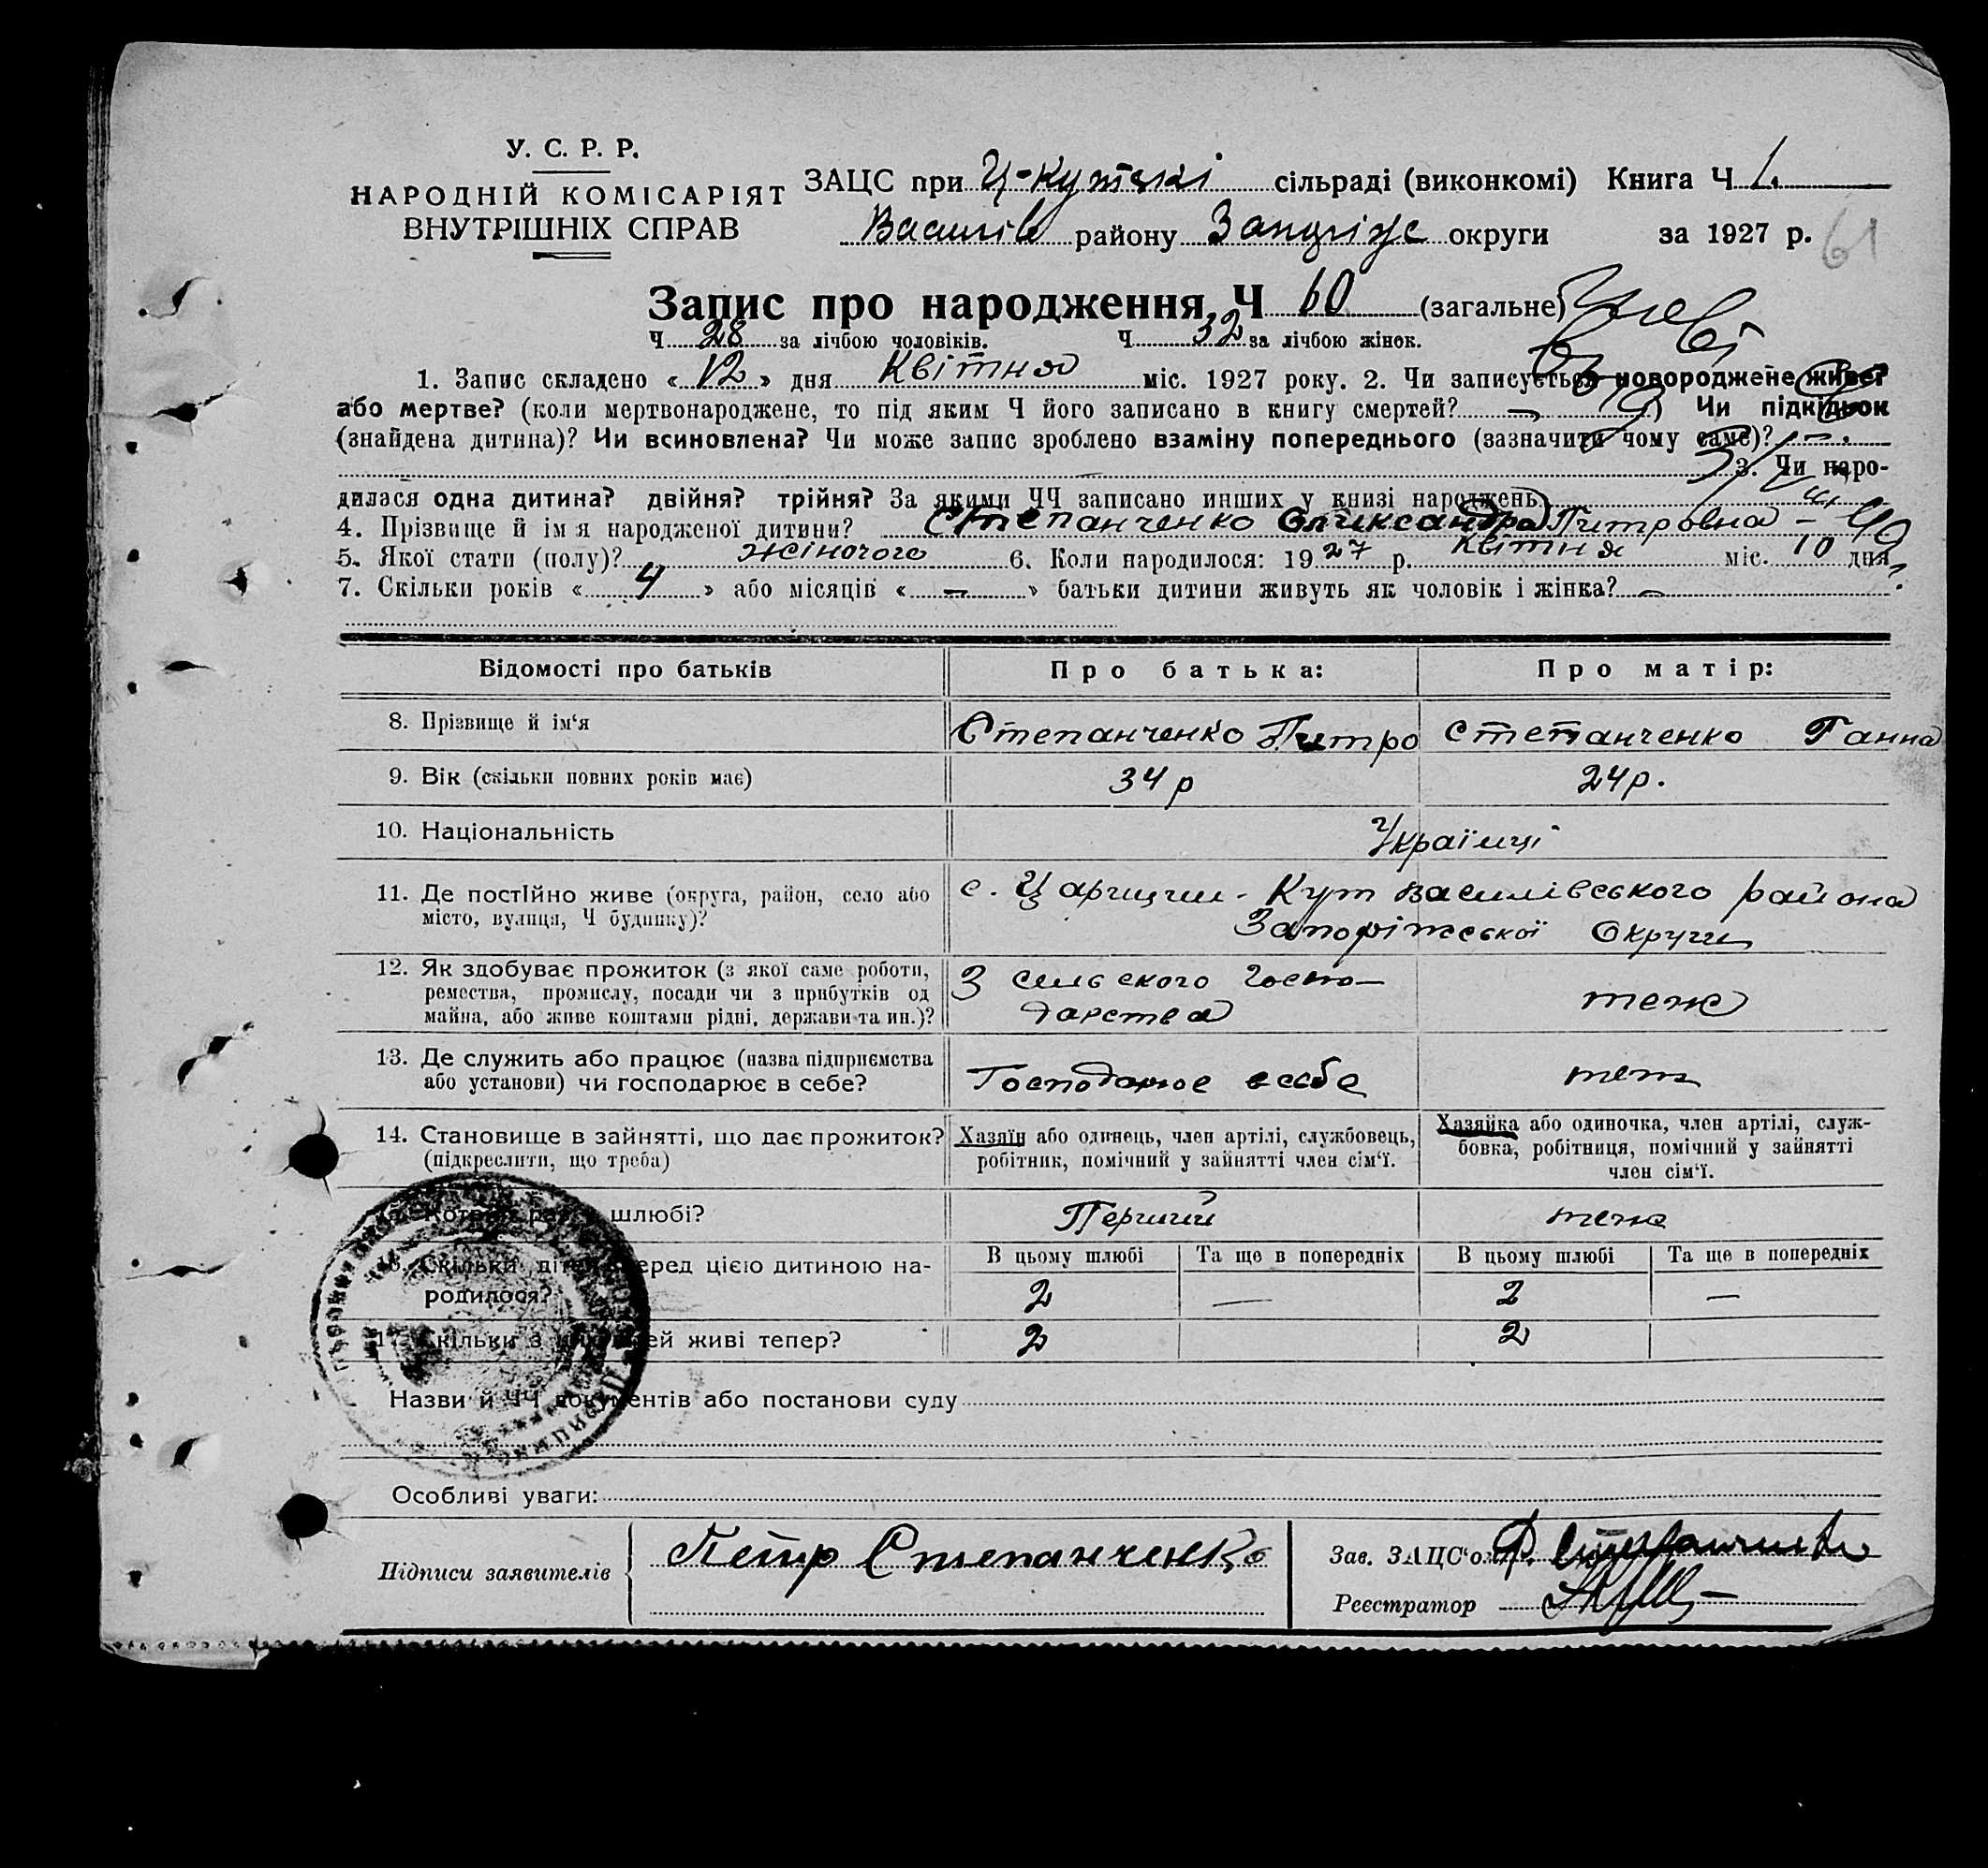 У. С. Р. Р.
НАРОДНІЙ КОМІСАРІЯТ
ВНУТРІШНІХ СПРАВ
ЗАЦС при Ц-кутскі сільраді (виконкомі) Книга Ч 1.
Василів району Запоріже округи за 1927 р.
61
Запис про народження Ч 60 (загальне)
Ч 28 за лічбою чоловіків. Ч 32 за лічбою жінок.
1. Запис складено « 12 » дня Квітня міс. 1927 року. 2. Чи записується новороджене живе?
або мертве? (коли мертвонароджене, то під яким Ч його записано в книгу смертей? — Чи підкідьок
(знайдена дитина)? Чи всиновлена? Чи може запис зроблено взаміну попереднього (зазначити чому саме)? —
3. Чи наро-
дилася одна дитина? двійня? трійня? За якими ЧЧ записано инших у книзі народжень
4. Прізвище й ім я народженої дитини? Степанченко Олександра Питровна
5. Якої стати (полу)? жіночого 6. Коли народилося: 1927 р. Квітня міс. 10 дня
7. Скільки років « 4 » або місяців « — » батьки дитини живуть як чоловік і жінка? —
Відомості про батьків Про батька: Про матір:
8. Прізвище й ім'я Степанченко Питро Степанченко Ганна
9. Вік (скільки повних років має) 34 р 24 р.
10. Національність Українці
11. Де постійно живе (округа, район, село або
місто, вулиця, Ч будинку)?
с. Царицин-Кут Василівського района
Запоріжської Округи
12. Як здобуває прожиток (з якої саме роботи,
ремества, промислу, посади чи з прибутків од
майна, або живе коштами рідні, держави та ин.)?
З сельського Госпо-
дарства
теж
13. Де служить або працює (назва підприємства
або установи) чи господарює в себе?
Господарює в себе
теж
14. Становище в зайнятті, що дає прожиток?
(підкреслити, що треба)
Хазяїн або одинець, член артілі, службовець,
робітник, помічний у зайнятті член сім'ї.
Хазяйка або одиночка, член артілі, служ-
бовка, робітниця, помічний у зайнятті
член сім'ї.
шлюбі? Перший теж
16. Скільки дітей перед цією дитиною на-
родилося?
В цьому шлюбі Та ще в попередніх В цьому шлюбі Та ще в попередніх
2 — 2 —
17. Скільки з цих дітей живі тепер? 2 2
Назви й ЧЧ документів або постанови суду
Особливі уваги:
Підписи заявителів Петр Степанченко
Зав. ЗАЦС'ом
Реєстратор